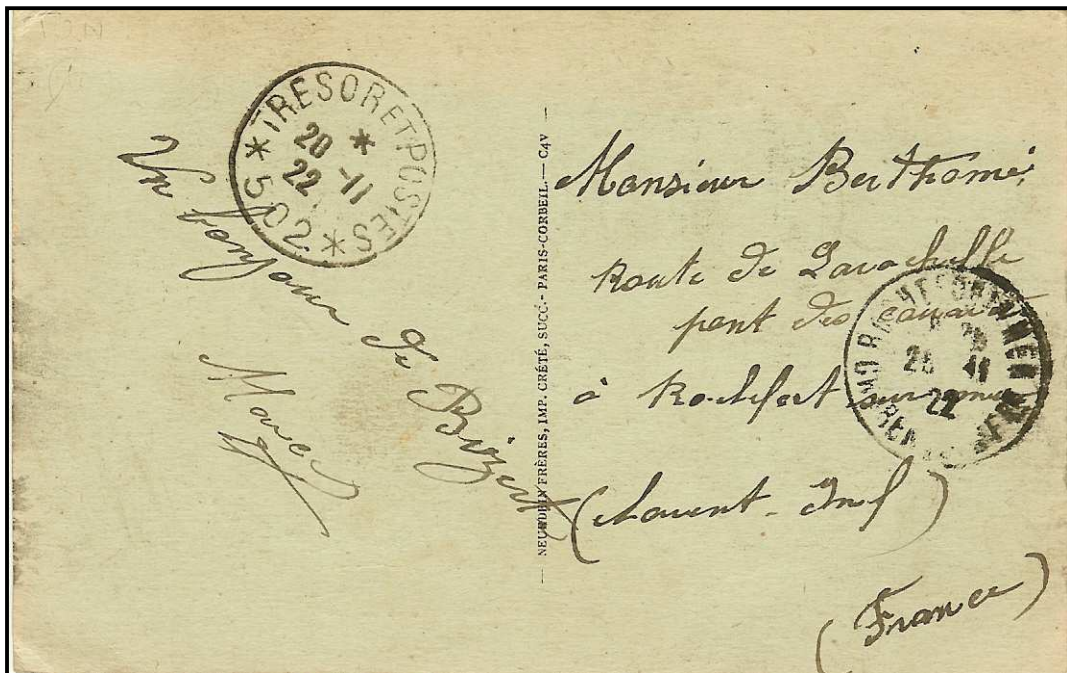 * TRESOR ET POSTES * 502
20 *
22 -11
Un bonjour de Bizert
Marcel
NEURDEIN FRÈRES, IMP. CRÉTÉ, SUCC.- PARIS-CORBEIL.— C4V
Monsieur Berthomé
Route de Larochelle
pont des
à Rochefort sur mer
(charent - Inf)
(France)
ROCHEFORT S MER
26 11
22